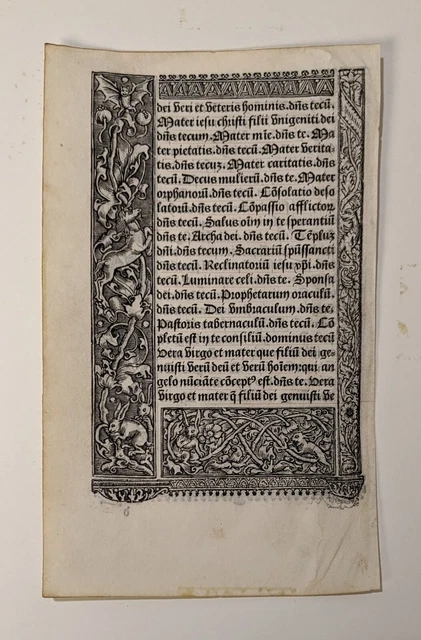 dei veri et veteris hominis. dn̄s tecū.
Mater iesu christi filii vnigeniti dei
dn̄s tecum. Mater mīe. dn̄s te. Ma
ter pietatis. dn̄s tecū. Mater verita-
tis. dn̄s tecuz. Mater caritatis. dn̄s
tecū. Decus mulierū. dn̄s te. Mater
orphanorū. dn̄s tecū. Cōsolatio deso
latorū. dn̄s tecū. Cōpassio afflictor
dn̄s tecū. Salus oīm in te sperantiū
dn̄s te. Archa dei. dn̄s tecū. Tēpluz
dn̄i. dn̄s tecum. Sacrariū sp̄ussancti
dn̄s tecū. Reclinatoriū iesu xp̄i. dn̄s
tecū. Luminare celi. dn̄s te. Sponsa
dei. dn̄s tecū. Prophetarum oraculū.
dn̄s tecū. Dei vmbraculum. dn̄s te.
Pastoris tabernaculū. dn̄s tecū. Cō
pletū est in te consiliū. dominus tecū
Vera virgo et mater que filiū dei ge-
nuisti verū deū et verū hoīem: qui an
gelo nūciāte cōcepꝰ est. dn̄s te. Vera
virgo et mater q̄ filiū dei genuisti ve